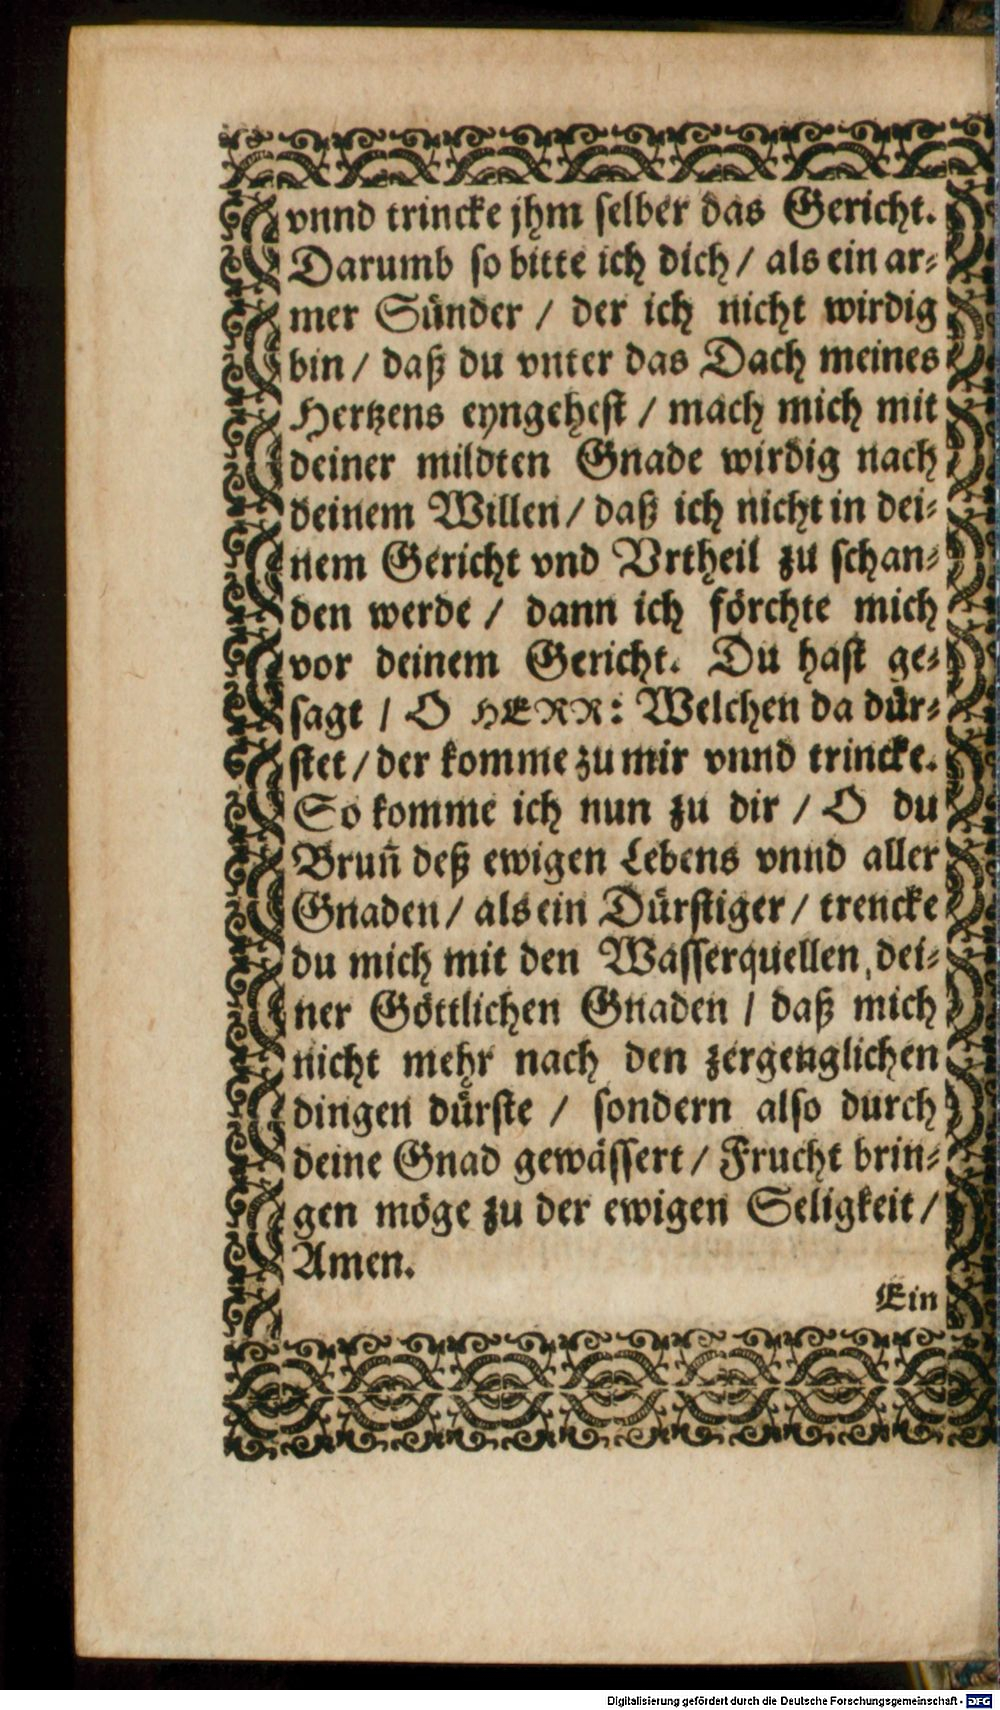 vnnd trincke jhm selber das Gericht.
Darumb so bitte ich dich / als ein ar⸗
mer Sünder / der ich nicht wirdig
bin / daß du vnter das Dach meines
Hertzens eyngehest / mach mich mit
deiner mildten Gnade wirdig nach
deinem Willen / daß ich nicht in dei⸗
nem Gericht vnd Vrtheil zu schan⸗
den werde / dann ich förchte mich
vor deinem Gericht. Du hast ge⸗
sagt / O HERR: Welchen da dür⸗
stet / der komme zu mir vnnd trincke.
So komme ich nun zu dir / O du
Bruñ deß ewigen Lebens vnnd aller
Gnaden / als ein Dürstiger / trencke
du mich mit den Wasserquellen dei⸗
ner Göttlichen Gnaden / daß mich
nicht mehr nach den zergenglichen
dingen dürste / sondern also durch
deine Gnad gewässert / Frucht brin⸗
gen möge zu der ewigen Seligkeit /
Amen.
Ein
Digitalisierung gefördert durch die Deutsche Forschungsgemeinschaft - DFG